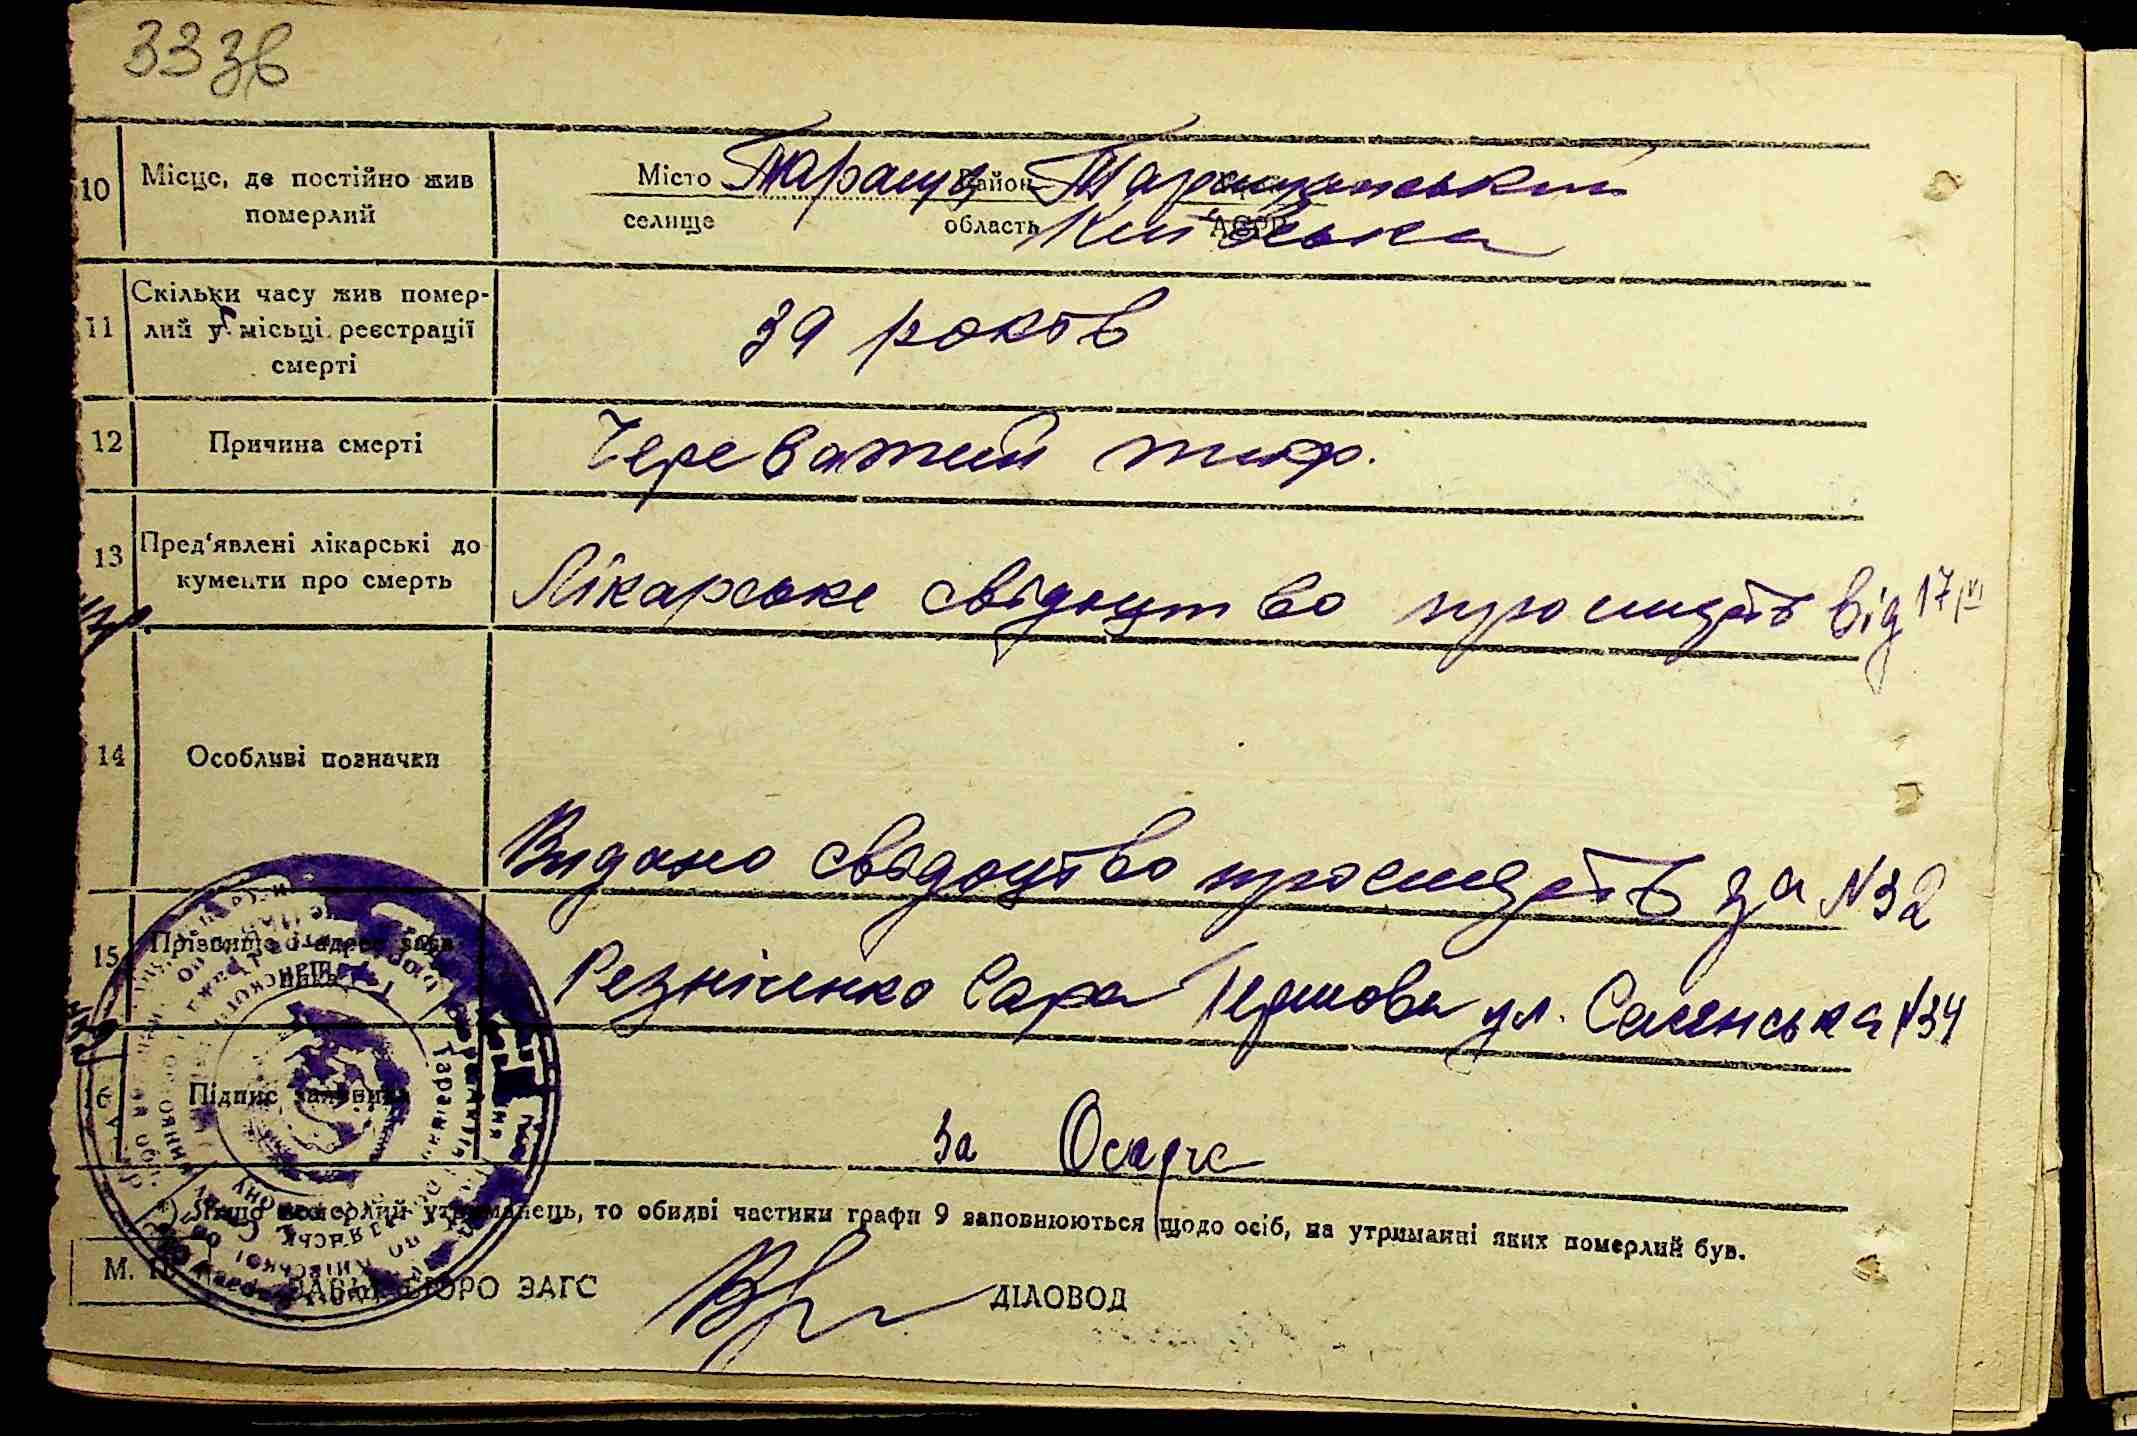 333в
10 Місце, де постійно жив
померлий
Місто Тараща Район Таращанський
селище область Київська АСРР
11 Скільки часу жив помер-
лий у місьці реєстрації
смерті
39 років
12 Причина смерті
Череватий тиф.
13 Пред'явлені лікарські до
кументи про смерть
Лікарське свідоцтво про смерть від 17/VI
14 Особливі позначки
Видано свідоцтво про смерть за №32
15 Прізвище і адреса заяв
ника
Резніченко Сара ул. №34
16 Підпис заявника
За
Якщо померлий утриманець, то обидві частини графи 9 заповнюються щодо осіб, на утриманні яких померлий був.
М. П. ЗАВ. БЮРО ЗАГС ДІЛОВОД